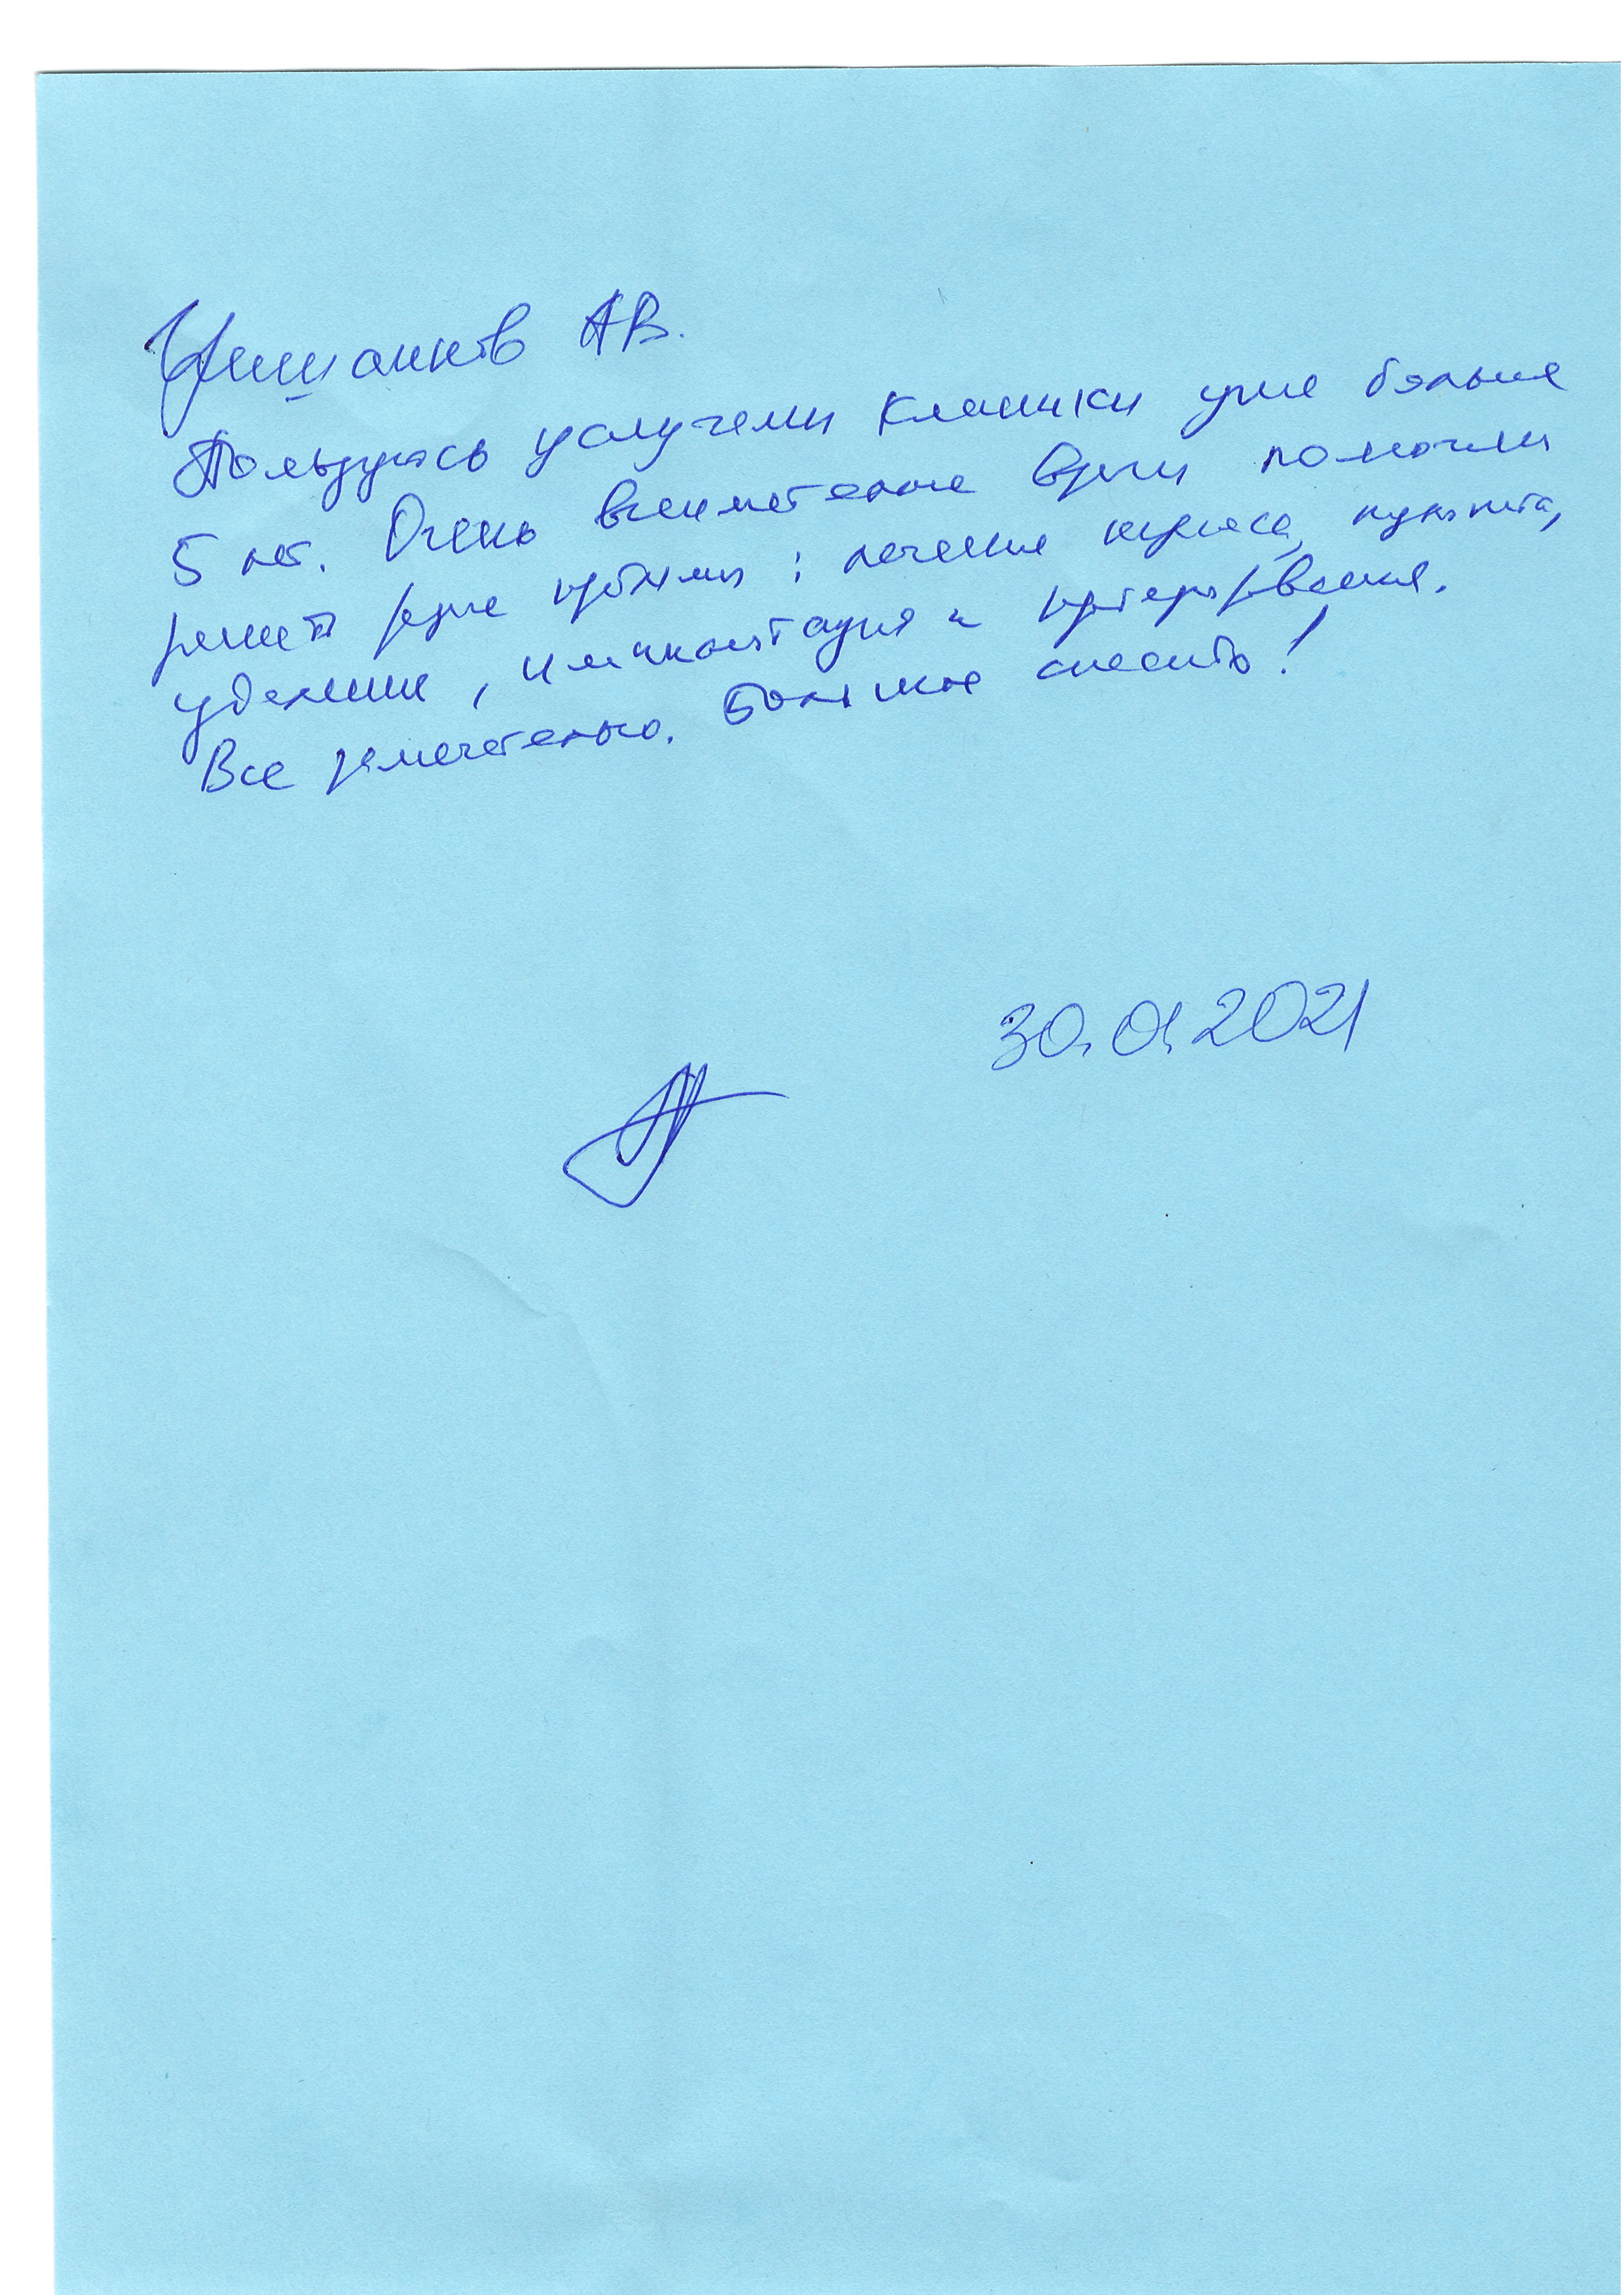 АВ.
Пользуюсь услугами клиники уже больше
5 лет. Очень внимательные врачи помогли
решить разные проблемы: лечение кариеса, пульпита,
удаление, имплантация и протезирование.
Все замечательно. Большое спасибо!
30.01.2021